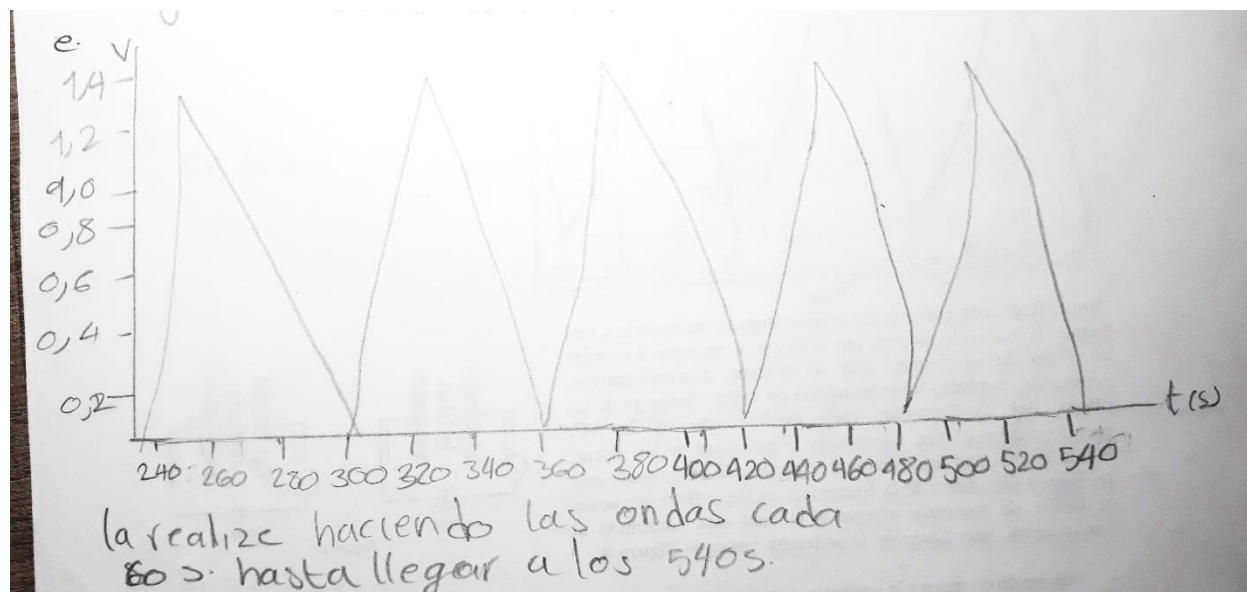 e. V
1,4
1,2
1,0
0,8
0,6
0,4
0,2
t(s)
240 260 280 300 320 340 360 380 400 420 440 460 480 500 520 540
la realize haciendo las ondas cada
60 s. hasta llegar a los 540s.